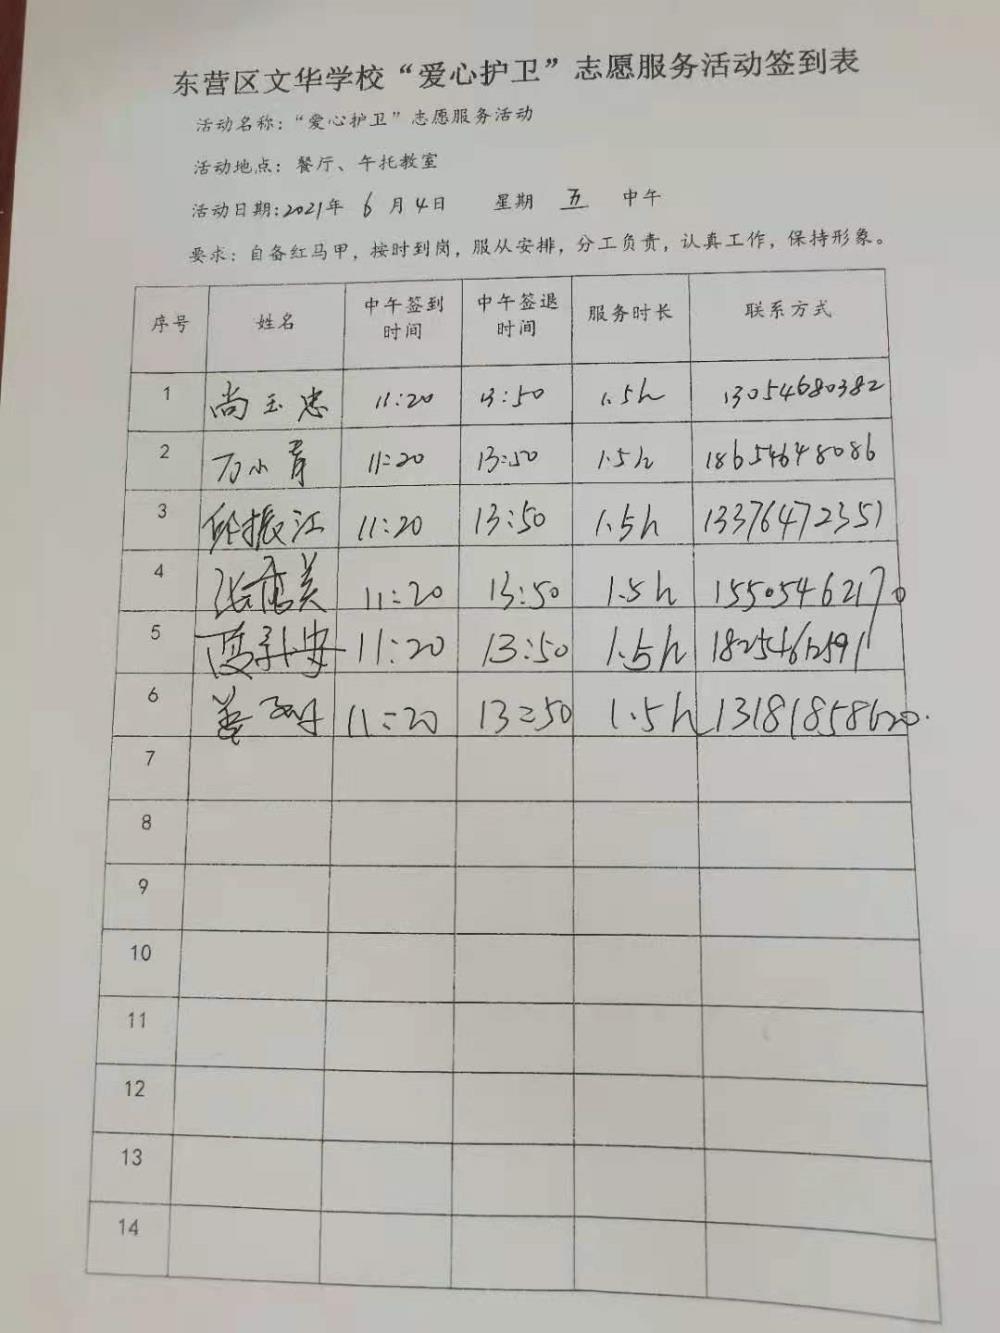 东营区文华学校“爱心护卫”志愿服务活动签到表
活动名称：“爱心护卫”志愿服务活动
活动地点：餐厅、午托教室
活动日期：2021年 6 月 4日 星期 五 中午
要求：自备红马甲，按时到岗，服从安排，分工负责，认真工作，保持形象。
序号 姓名 中午签到时间 中午签退时间 服务时长 联系方式
1 尚玉忠 11:20 13:50 1.5h 13054680382
2 万小青 11:20 13:50 1.5h 18654648086
3 邱振江 11:20 13:50 1.5h 13376472351
4 张 美 11:20 13:50 1.5h 15505462170
5 11:20 13:50 1.5h 18254612591
6 姜 11:20 13:50 1.5h 13181858620.
7
8
9
10
11
12
13
14